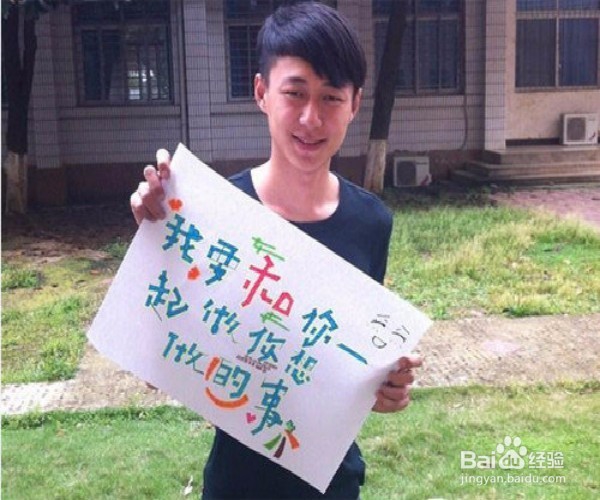 我要和你一
起做你想
做的事
Bai du 经验
jingyan.baidu.com